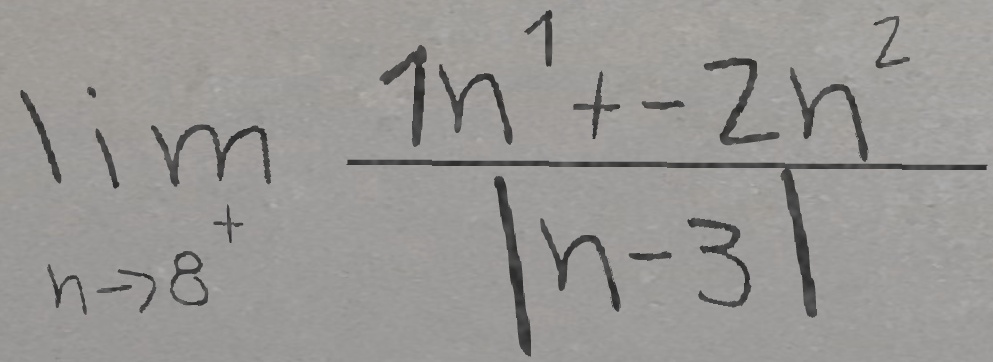 lim_{n \to 8^+} \frac{1n^1 + -2n^2}{|n-3|}